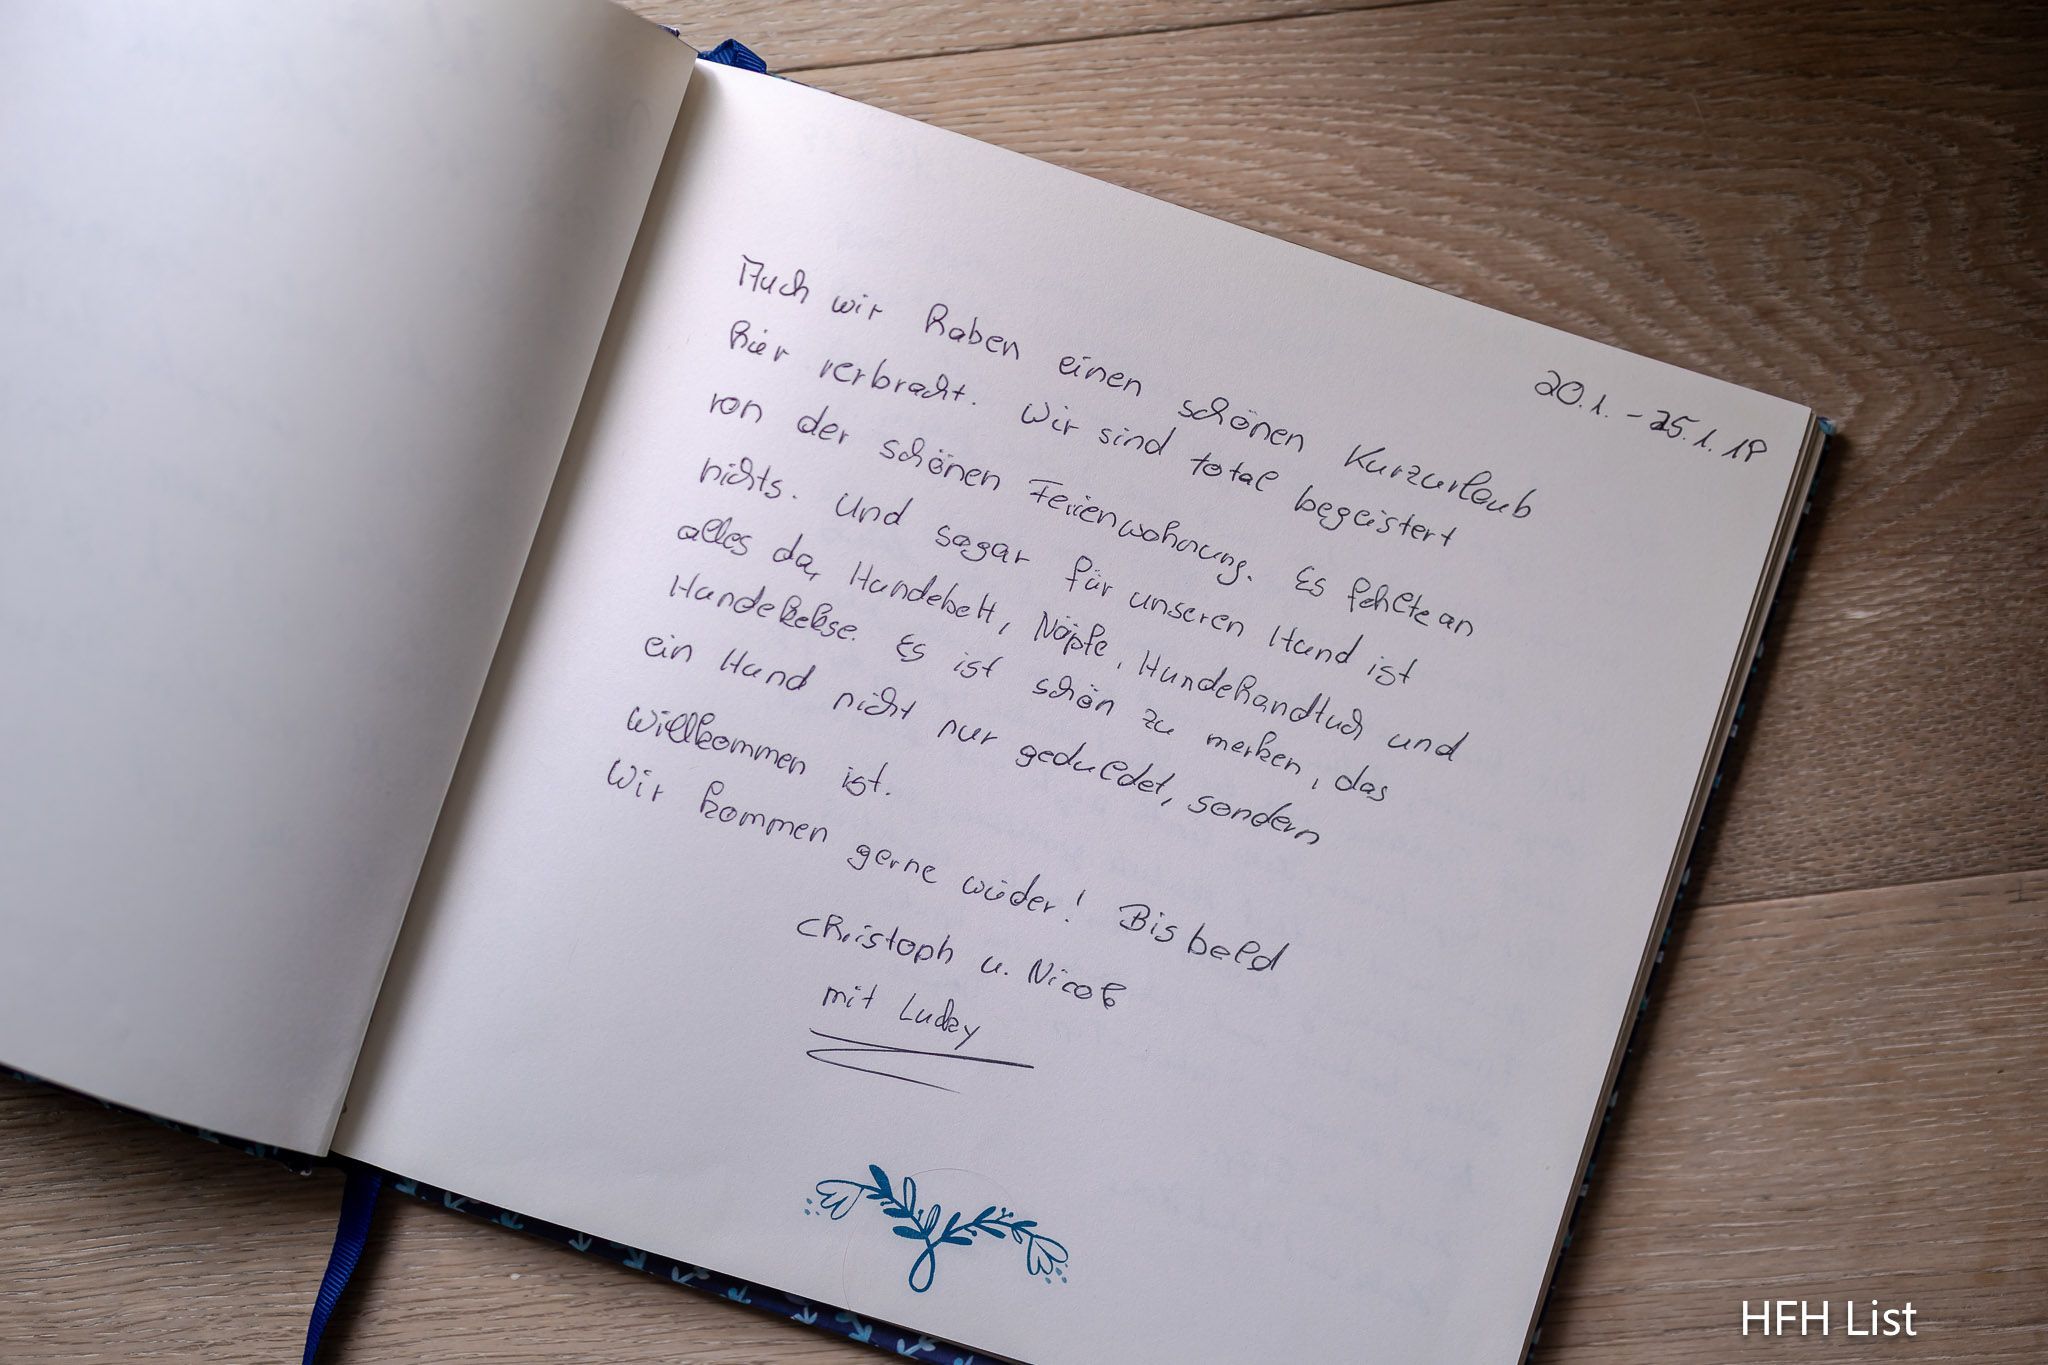 20.1. - 25.1.19
Auch wir haben einen schönen Kurzurlaub
hier verbracht. Wir sind total begeistert
von der schönen Ferienwohnung. Es fehlte an
nichts. Und sogar für unseren Hund ist
alles da, Hundebett, Näpfe, Hundehandtuch und
Hundekekse. Es ist schön zu merken, das
ein Hund nicht nur geduldet, sondern
Willkommen ist.
Wir kommen gerne wieder! Bis bald
Christoph u. Nicole
mit Lucky
HFH List